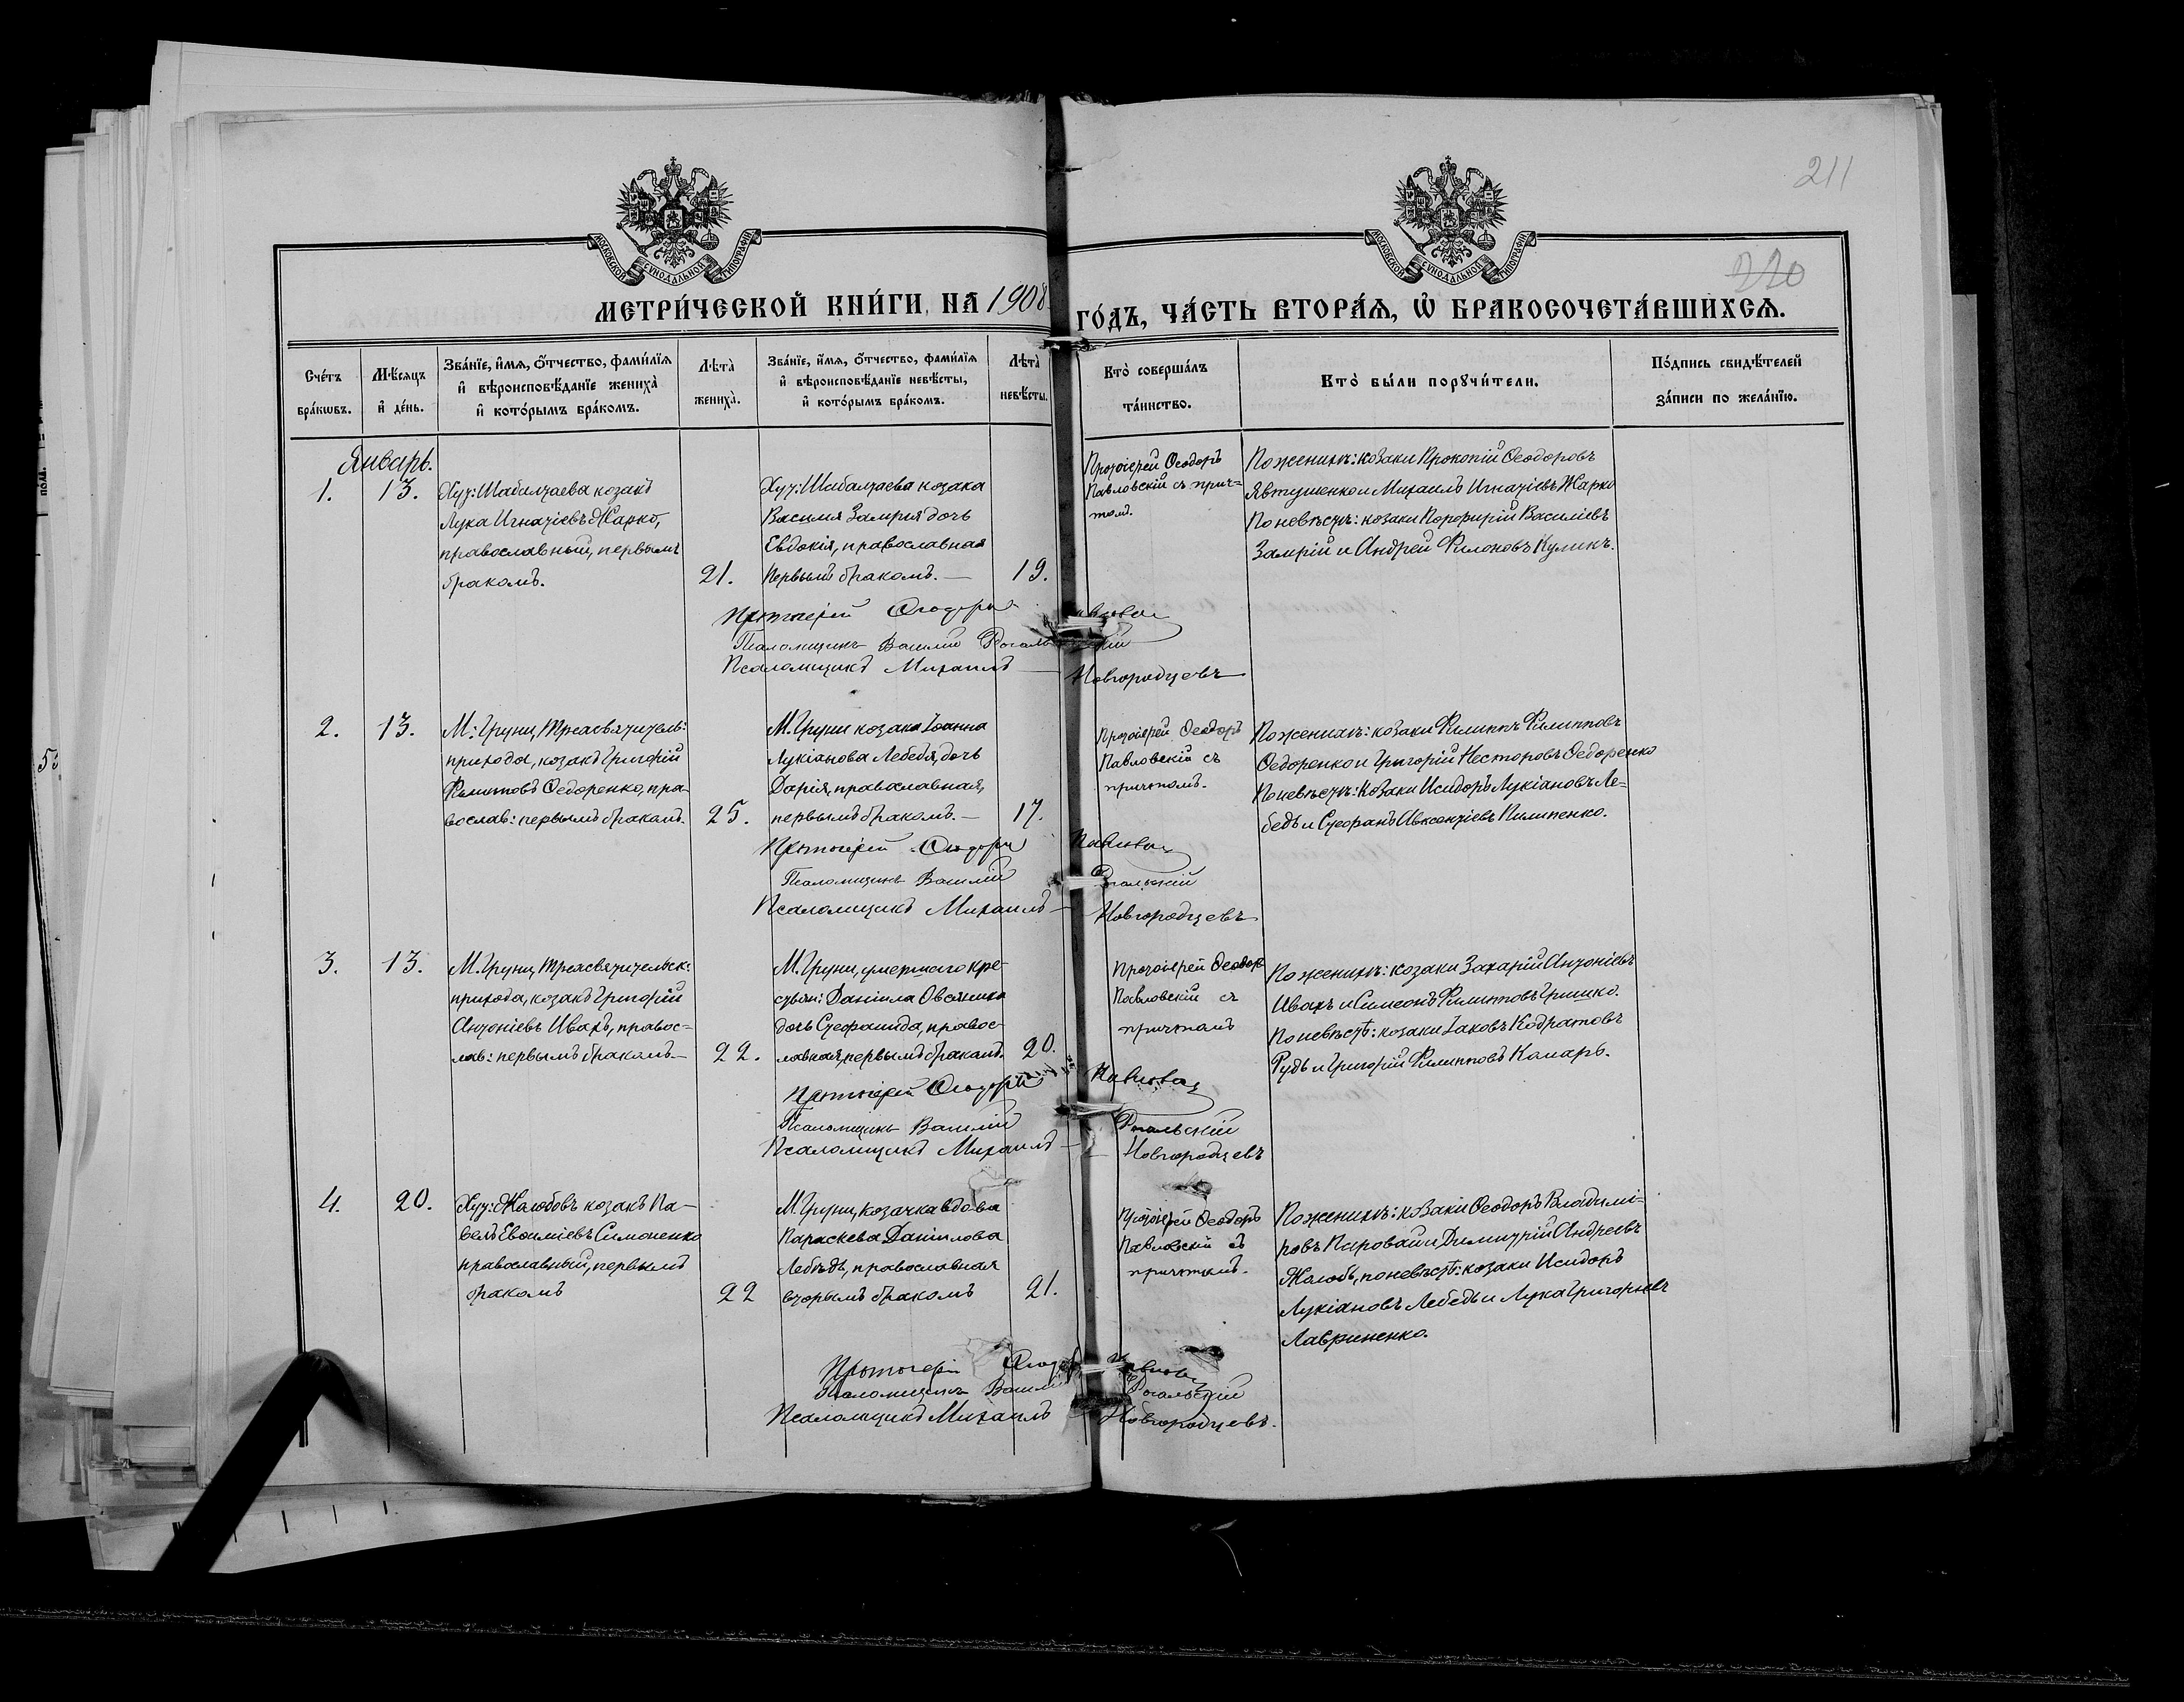 211
220
МОСКОВСКОЙ СѴНОДАЛЬНОЙ ТИПОГРАФІИ
МОСКОВСКОЙ СѴНОДАЛЬНОЙ ТИПОГРАФІИ
МЕТРИ́ЧЕСКОЙ КНИ́ГИ НА 1908 ГО́ДЪ, ЧА́СТЬ ВТОРА́Ѧ, Ѽ БРАКОСОЧЕТА́ВШИХСѦ.
Сче́тъ бра́кѡвъ.
Мѣ́сѧцъ и҆ де́нь.
Зва́нїе, и҆́мѧ, ѻ҆́тчество, фами́лїѧ и҆ вѣроисповѣ́данїе жениха̀ и҆ кото́рымъ бра́комъ.
Лѣта̀ жениха̀.
Зва́нїе, и҆́мѧ, ѻ҆́тчество, фами́лїѧ и҆ вѣроисповѣ́данїе невѣ́сты, и҆ кото́рымъ бра́комъ.
Лѣта̀ невѣ́сты.
Кто̀ соверша́лъ та́инство.
Кто̀ бы́ли порꙋчи́тели.
По́дпись свидѣ́телей за́писи по жела́нїю.
Январь.
1.
13.
Хут: Шабалтаева козакъ
Лука Игнатіевъ Жарко,
православный, первымъ
бракомъ.
21.
Хут: Шабалтаева козака
Василія Замрія дочь
Евдокія, православная
первымъ бракомъ. —
19.
Протоіерей Ѳеодоръ
Павловскій съ прич-
томъ.
По женихѣ: козаки Прокопій Ѳеодоровъ
Явтушенко и Михаилъ Игнатіевъ Жарко
По невѣстѣ: козаки Порфирій Василіевъ
Замрій и Андрей Филоновъ Куликъ.
Протоіерей Ѳеодоръ Павловскій
Псаломщикъ Василій Рогальскій
Псаломщикъ Михаилъ — Новгородцевъ
2.
13.
М: Груни, Трехсвятитель:
прихода, козакъ Григорій
Филиповъ Ѳедоренко, пра-
вослав: первымъ бракомъ.
25.
М. Груни козака Іоанна
Лукіанова Лебедя, дочь
Дарія, православная,
первымъ бракомъ. —
17.
Протоіерей Ѳеодоръ
Павловскій съ
причтомъ.
По женихѣ: козаки Филиппъ Филипповъ
Ѳедоренко и Григорій Несторовъ Ѳедоренко
По невѣстѣ: козаки Исидоръ Лукіановъ Ле-
бедь и Стефанъ Авксентіевъ Пилипенко.
Протоіерей Ѳеодоръ Павловскій
Псаломщикъ Василій Рогальскій
Псаломщикъ Михаилъ — Новгородцевъ
3.
13.
М. Груни, Трехсвятительск:
прихода, козакъ Григорій
Антоніевъ Ивахъ, правос-
лав: первымъ бракомъ —
22.
М. Груни, умершаго кре-
стьян: Даніила Овсяника
дочь Стефанида, правос-
лавная, первымъ бракомъ.
20.
Протоіерей Ѳеодоръ
Павловскій съ
причтомъ
По женихѣ: козаки Захарій Антоніевъ
Ивахъ и Симеонъ Филипповъ Гришко.
По невѣстѣ: козаки Іаковъ Кодратовъ
Рудь и Григорій Филипповъ Комарь.
Протоіерей Ѳеодоръ Павловскій
Псаломщикъ Василій Рогальскій
Псаломщикъ Михаилъ — Новгородцевъ
4.
20.
Хут: Жолобовъ козакъ Па-
велъ Евѳиміевъ Симоненко
православный, первымъ
бракомъ
22
М. Груни, козачка вдова
Параскева Даніилова
Лебѣдь, православная
вторымъ бракомъ
21.
Протоіерей Ѳеодоръ
Павловскій съ
причтомъ.
По женихѣ: козаки Ѳеодоръ Владимі-
ровъ Паровай и Димитрій Андреевъ
Жолобъ, по невѣстѣ: козаки Исидоръ
Лукіановъ Лебедь и Лука Григорьевъ
Лавриненко.
Протоіерей Ѳеодоръ Павловскій
Псаломщикъ Василій Рогальскій
Псаломщикъ Михаилъ Новгородцевъ.